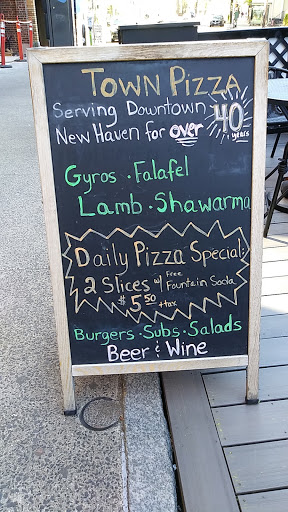 Town Pizza
Serving Downtown
New Haven for over 40 years
Gyros · Falafel
Lamb · Shawarma
Daily Pizza Special:
2 Slices w/ Free Fountain Soda
$5.50 +tax
Burgers · Subs · Salads
Beer & Wine